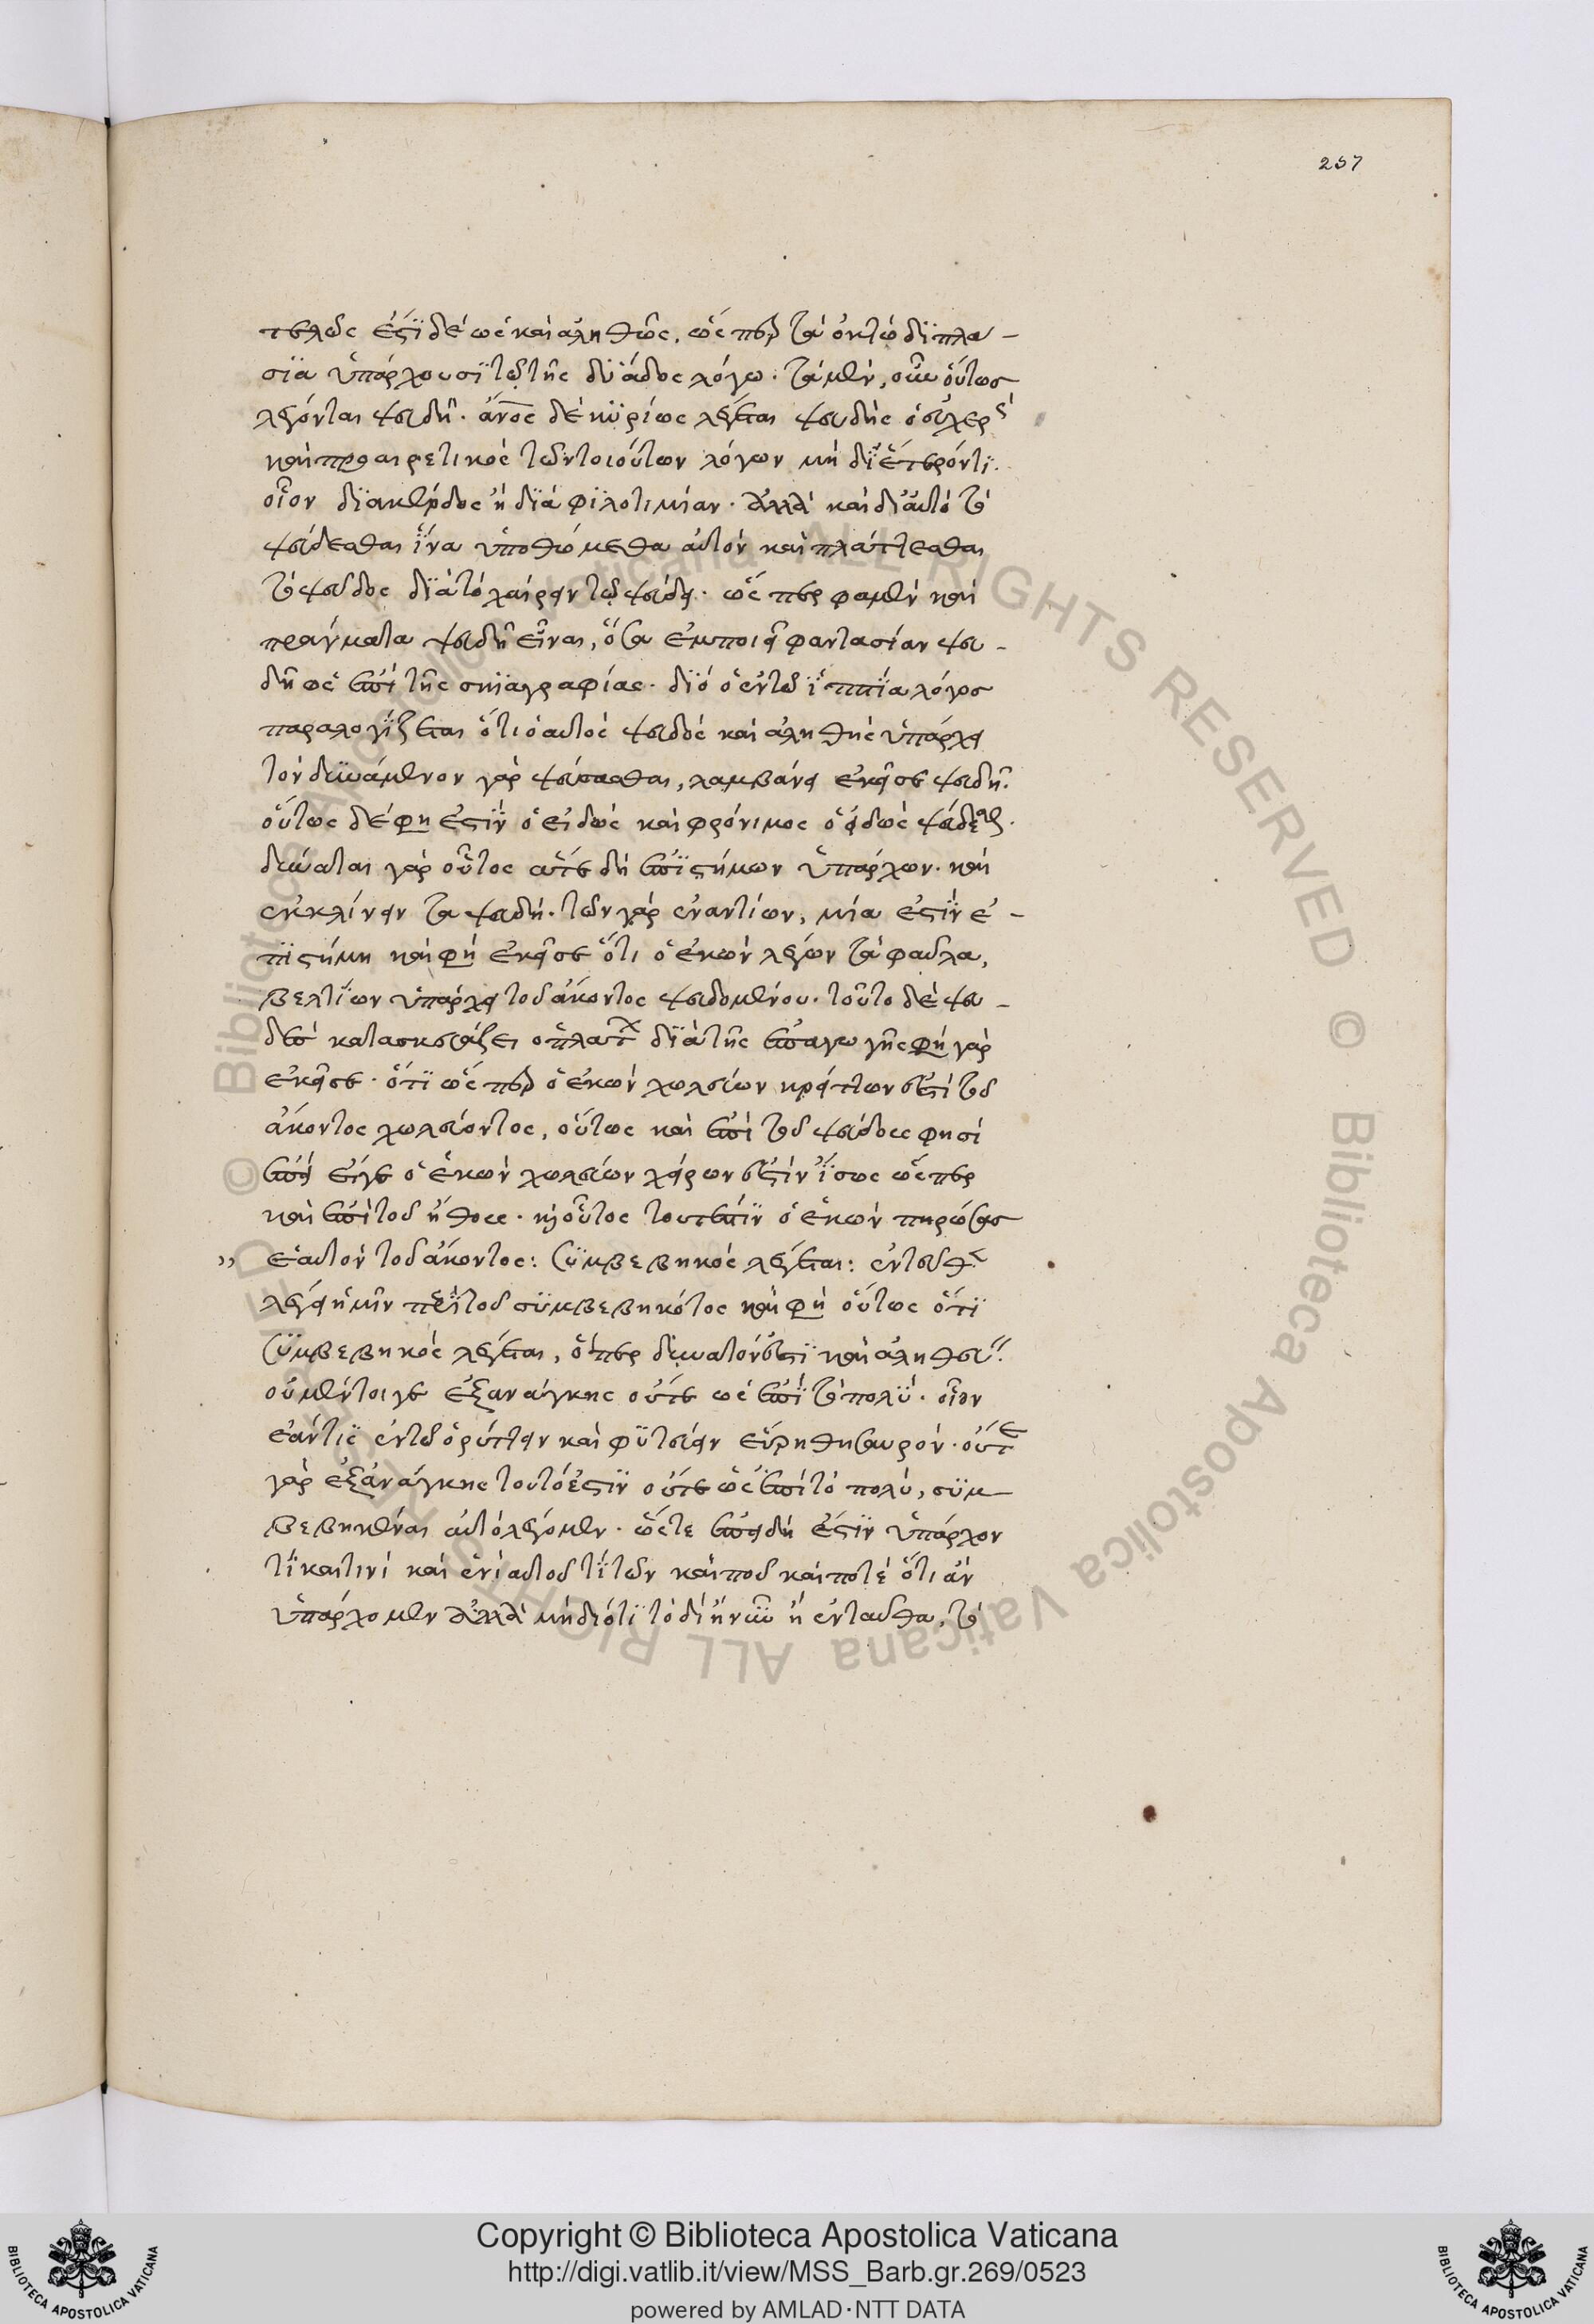 257
τελῶς ἐστὶ δὲ ὡς καὶ ἀληθῶς. ὥσπερ τὰ ὀκτὼ διπλα-
σια ὑπάρχουσι τῷ τῆς δυάδος λόγῳ. τὰ μὲν, οὖν οὕτως
λέγονται ψευδῆ. ἄνος δὲ κυρίως λέγεται ψευδὴς ὁ εὐχερὴς
καὶ προαιρετικὸς τῶν τοιούτων λόγων μὴ δι' ἕτερόν τι.
οἷον διὰ κέρδος ἢ διὰ φιλοτιμίαν. ἀλλὰ καὶ δι' αὐτὸ τὸ
ψεύδεσθαι ἵνα ὑποθώμεθα αὐτὸν καὶ πλάττεσθαι
τὸ ψεῦδος διὰ τὸ χαίρειν τῷ ψεύδει. ὥσπερ φαμὲν καὶ
πράγματα ψευδῆ εἶναι, ὅσα ἐμποιεῖ φαντασίαν ψευ-
δῆ ὡς ἐπὶ τῆς σκιαγραφίας. διὸ ὁ ἐν τῷ ἱππίᾳ λόγος
παραλογίζεται ὅτι ὁ αὐτὸς ψευδὸς καὶ ἀληθὴς ὑπάρχει
τὸν δυνάμενον γὰρ ψεύσασθαι, λαμβάνει ἐκεῖσε ψευδῆ.
οὕτως δέ φη ἐστὶν ὁ εἰδὼς καὶ φρόνιμος ὁ εἰδὼς
δύναται γὰρ οὗτος ἅτε δὴ ἐπιστήμων ὑπάρχων. καὶ
ἐκκλίνειν τὰ ψευδή. τῶν γὰρ ἐναντίων, μία ἐστὶν ἐ-
πιστήμη καὶ φὴ ἐκεῖσε ὅτι ὁ ἑκὼν λέγων τὰ φαῦλα,
βελτίων ὑπάρχει τοῦ ἄκοντος ψευδομένου. τοῦτο δὲ ψευ-
δὲς κατασκευάζει ὁ πλάτ διὰ τῆς ἐπαγωγῆς φὴ γὰρ
ἐκεῖσε. ὅτι ὥσπερ ὁ ἑκὼν χωλεύων κρείττων ἐστὶ τοῦ
ἄκοντος χωλεύοντος, οὕτως καὶ ἐπὶ τοῦ ψεύδους φησί
ἐπεὶ εἴγε ὁ ἑκὼν χωλεύων χείρων ἐστὶν ἴσως ὥσπερ
καὶ ἐπὶ τοῦ ἤθους. καὶ οὗτος τουτέστιν ὁ ἑκὼν πηρώσας
„ ἑαυτὸν τοῦ ἄκοντος: συμβεβηκὸς λέγεται: ἐντεῦθεν
λέγει ἡμῖν περὶ τοῦ συμβεβηκότος καὶ φὴ οὕτως ὅτι
συμβεβηκὸς λέγεται, ὅπερ δυνατόν ἐστι καὶ ἀληθεύειν.
οὐ μέντοιγε ἐξ ἀνάγκης οὔτε ὡς ἐπὶ τὸ πολὺ. οἷον
ἐάν τις ἐν τῷ ὀρύττειν καὶ φυτεύειν εὕρῃ θησαυρόν. οὔτε
γὰρ ἐξ ἀνάγκης τουτό ἐστιν οὔτε ὡς ἐπὶ τὸ πολὺ, συμ-
βεβηκέναι αὐτὸ λέγομεν. ὥστε ἐπειδὴ ἐστὶν ὑπάρχον
τὶ καὶ τινὶ καὶ ἐνὶ αὐτοῦ τὶ τῶν καὶ ποῦ καὶ ποτὲ ὅτι ἂν
ὑπάρχομεν ἀλλὰ μὴ διότι τὸ δὶ ἢ νῦν ἢ ἐνταῦθα, τὸ
Copyright © Biblioteca Apostolica Vaticana
http://digi.vatlib.it/view/MSS_Barb.gr.269/0523
powered by AMLAD·NTT DATA
BIBLIOTECA APOSTOLICA VATICANA
BIBLIOTECA APOSTOLICA VATICANA
© Biblioteca Apostolica Vaticana ALL RIGHTS RESERVED © Biblioteca Apostolica Vaticana ALL RIGHTS RESERVED